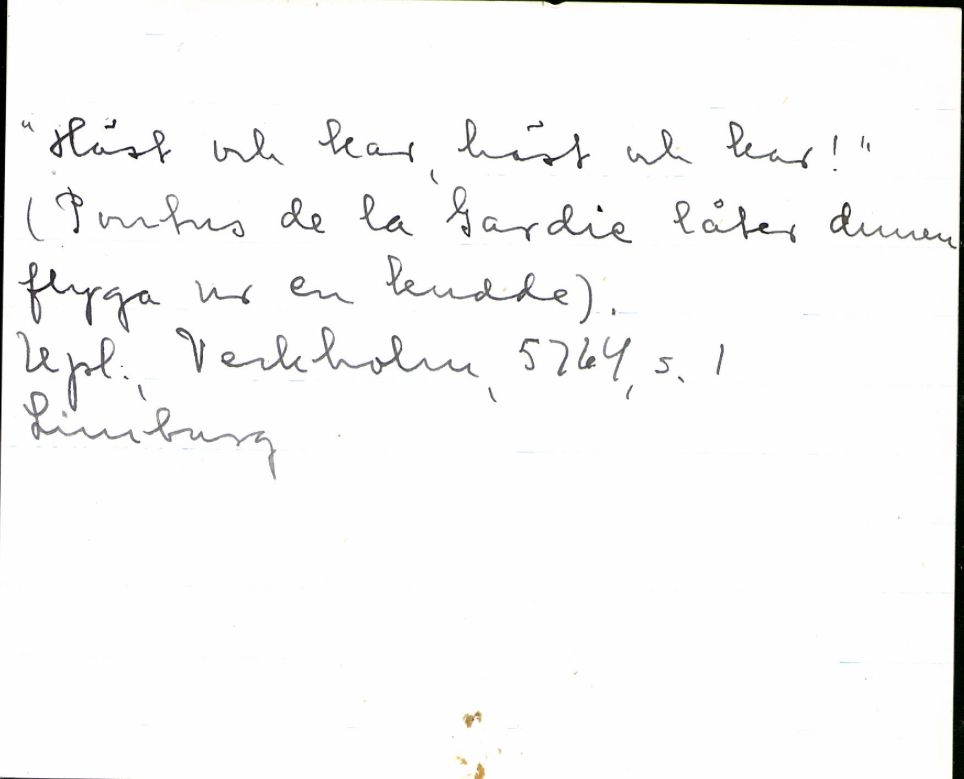 "Häst och kar, häst och kar!"
(Pontus de la Gardie låter dunen
flyga ur en kudde).
Upl., Veckholm, 5764, s. 1
Limburg